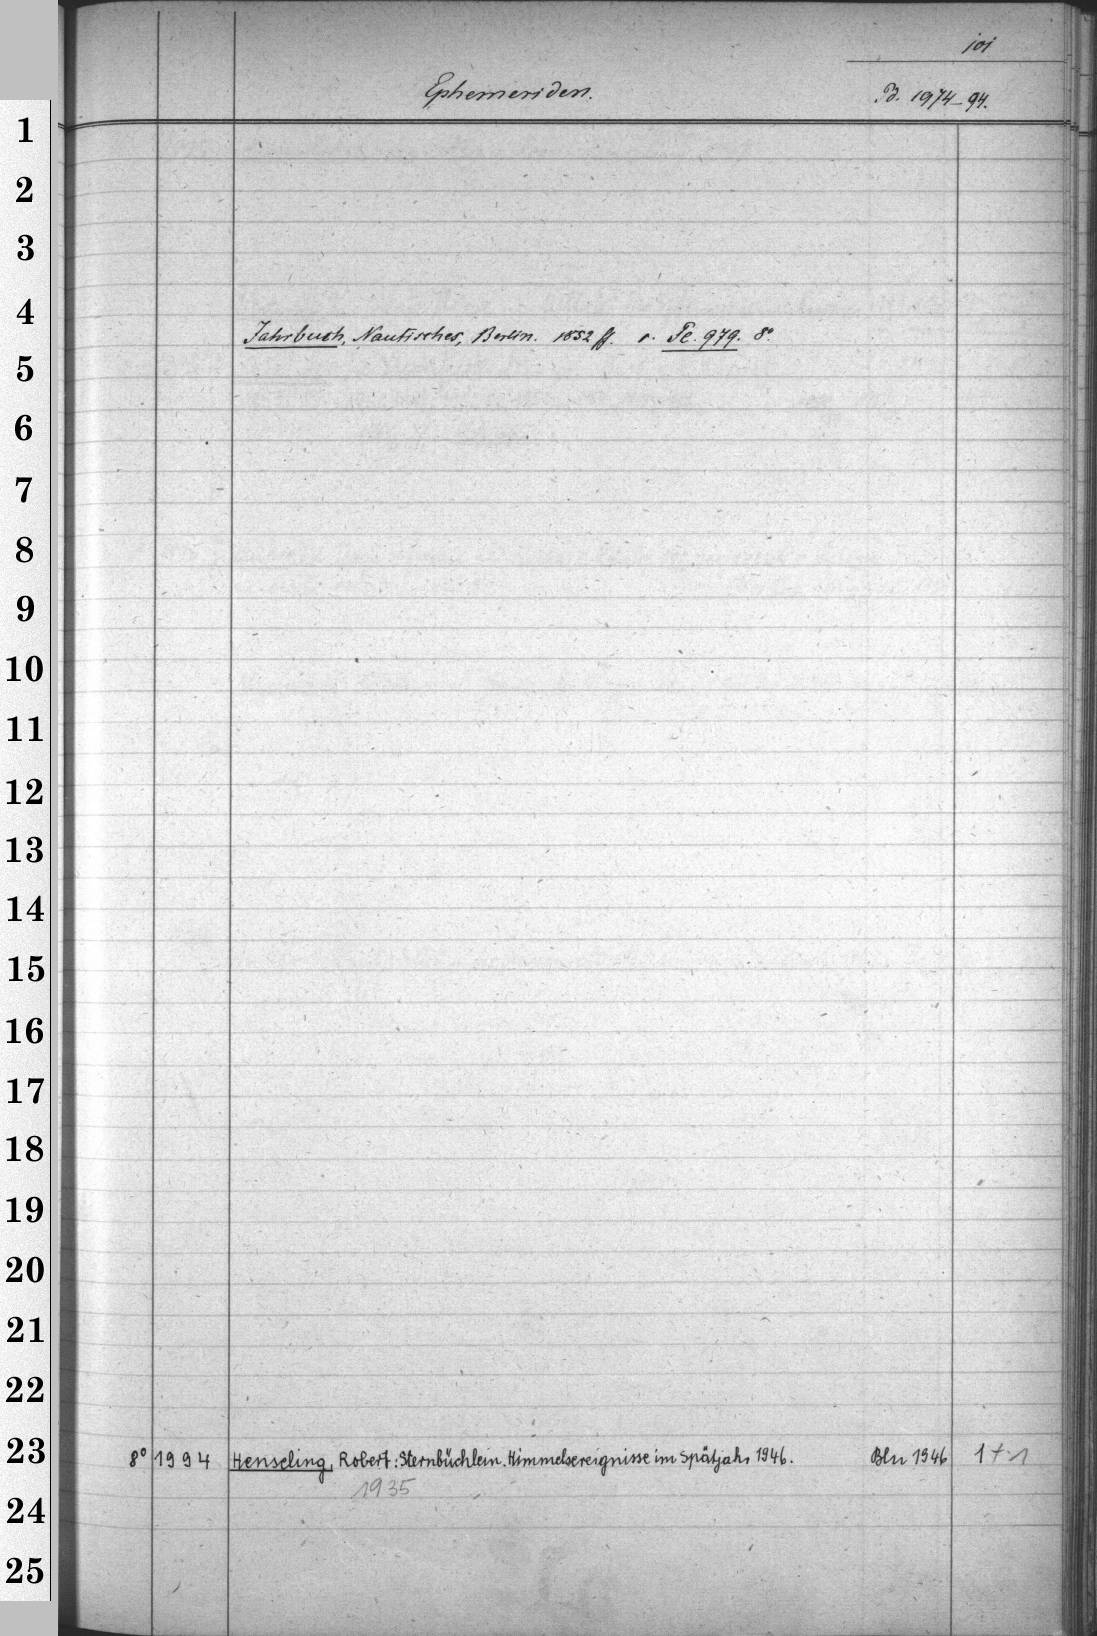 101
Ephemeriden.
B. 1974-94.
1
2
3
4
Jahrbuch, Nautisches, Berlin. 1852 ff. s. Pe. 979. 8°
5
6
7
8
9
10
11
12
13
14
15
16
17
18
19
20
21
22
23
8° 1994 Henseling, Robert: Sternbüchlein. Himmelsereignisse im Spätjahr 1946. Bln 1946 1+1
1935
24
25